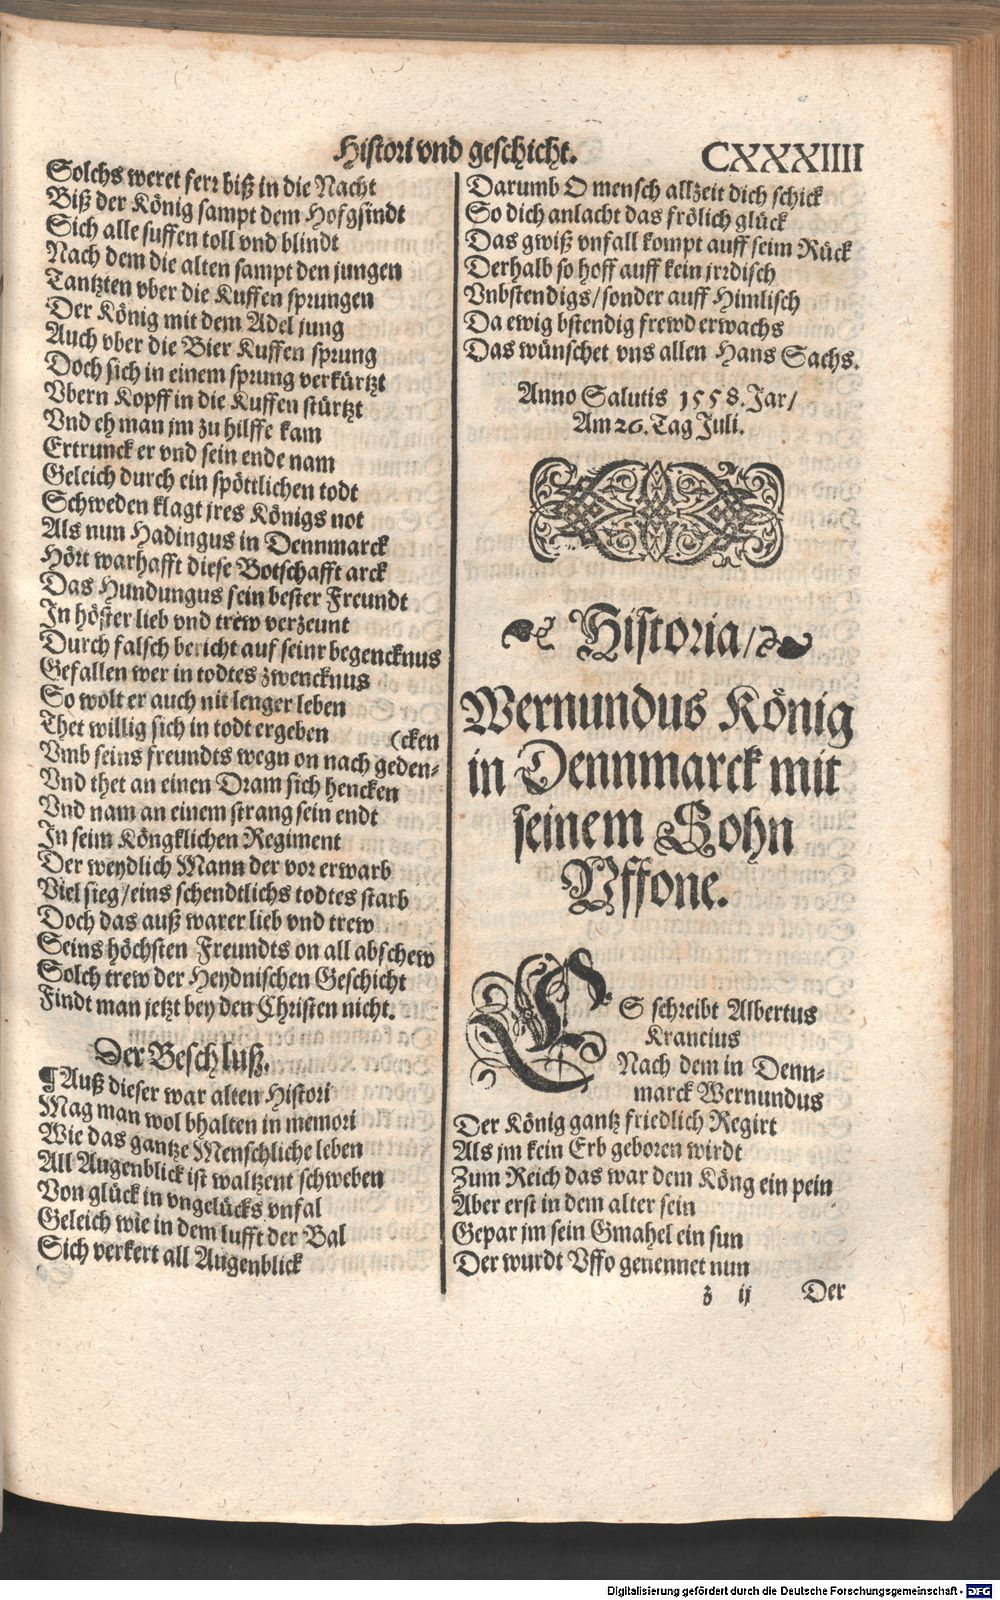 Histori vnd geschicht. CXXXIIII
Solchs weret ferr biß in die Nacht
Biß der König sampt dem Hofgsindt
Sich alle suffen toll vnd blindt
Nach dem die alten sampt den jungen
Tantzten vber die Kuffen sprungen
Der König mit dem Adel jung
Auch vber die Bier Kuffen sprung
Doch sich in einem sprung verkürtzt
Vbern Kopff in die Kuffen stürtzt
Vnd eh man jm zu hilffe kam
Ertrunck er vnd sein ende nam
Geleich durch ein spöttlichen todt
Schweden klagt jres Königs not
Als nun Hadingus in Dennmarck
Hört warhafft diese Botschafft arck
Das Hundungus sein bester Freundt
In höster lieb vnd trew verzeunt
Durch falsch bericht auf seinr begencknus
Gefallen wer in todtes zwencknus
So wolt er auch nit lenger leben
Thet willig sich in todt ergeben (cken
Vmb seins freundts wegn on nach geden-
Vnd thet an einen Dram sich hencken
Vnd nam an einem strang sein endt
In seim Köngklichen Regiment
Der weydlich Mann der vor erwarb
Viel sieg/eins schendtlichs todtes starb
Doch das auß warer lieb vnd trew
Seins höchsten Freundts on all abschew
Solch trew der Heydnischen Geschicht
Findt man jetzt bey den Christen nicht.
Der Beschluß.
¶ Auß dieser war alten Histori
Mag man wol bhalten in memori
Wie das gantze Menschliche leben
All Augenblick ist waltzent schweben
Von glück in vngelücks vnfal
Geleich wie in dem lufft der Bal
Sich verkert all Augenblick
Darumb O mensch allzeit dich schick
So dich anlacht das frölich glück
Das gwiß vnfall kompt auff seim Rück
Derhalb so hoff auff kein jrrdisch
Vnbstendigs/sonder auff Himlisch
Da ewig bstendig frewd erwachs
Das wünschet vns allen Hans Sachs.
Anno Salutis 1558. Jar/
Am 26. Tag Juli.
Historia/
Wernundus König
in Dennmarck mit
seinem Sohn
Vffone.
ES schreibt Albertus
Krancius
Nach dem in Denn-
marck Wernundus
Der König gantz friedlich Regirt
Als jm kein Erb geboren wirdt
Zum Reich das war dem Köng ein pein
Aber erst in dem alter sein
Gepar jm sein Gmahel ein sun
Der wurdt Vffo genennet nun
z ij Der
Digitalisierung gefördert durch die Deutsche Forschungsgemeinschaft - DFG